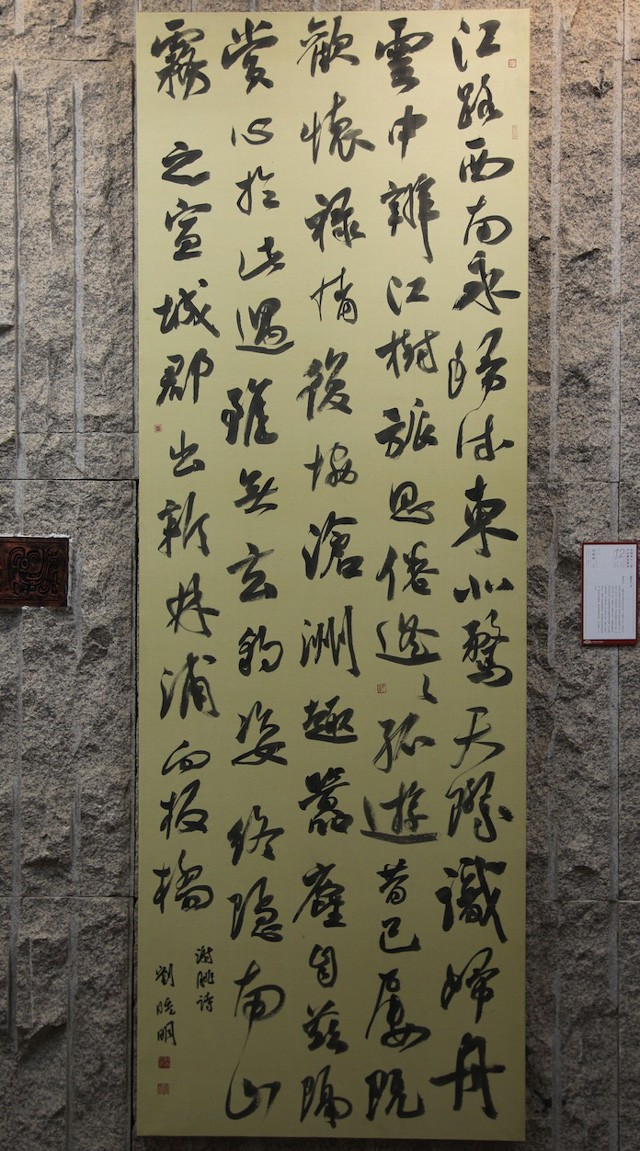 江路西南永歸流東北騖天際識歸舟
雲中辨江樹旅思倦遙々孤遊昔已屢既
歡懷祿情復協滄洲趣囂塵自茲隔
賞心於此遇雖無玄豹姿終隱南山
霧 之宣城郡出新林浦向板橋
謝朓詩
劉曉明